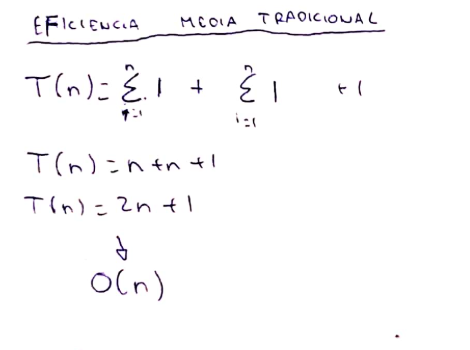 EFICIENCIA MEDIA TRADICIONAL
T(n) = \sum_{i=1}^{n} 1 + \sum_{i=1}^{n} 1 + 1
T(n) = n + n + 1
T(n) = 2n + 1
↓
O(n)